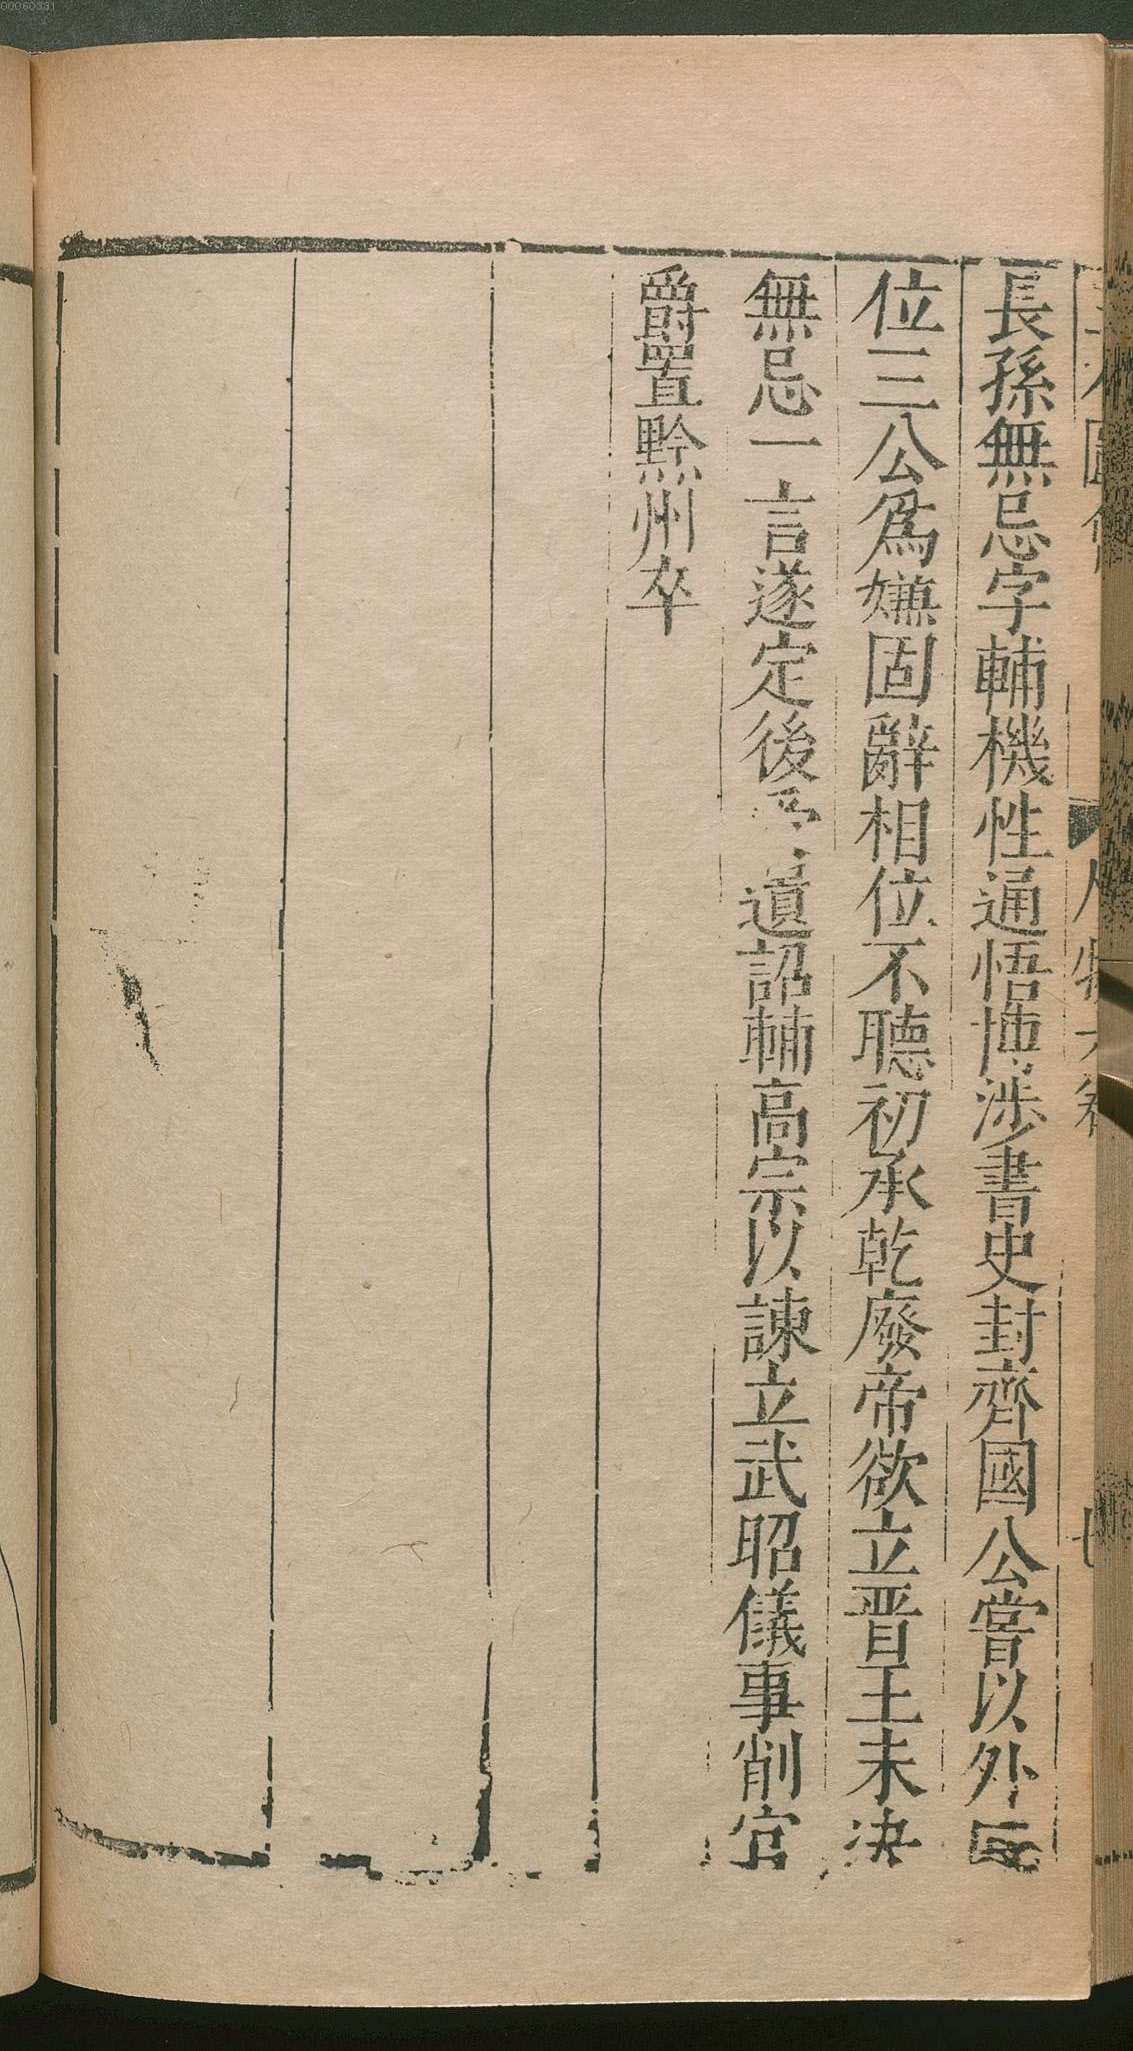 長孫無忌字輔機性通悟博涉書史封齊國公嘗以外
位三公為嫌固辭相位不聽初承乾廢帝欲立晋王未決
無忌一言遂定後遺詔輔高宗以諫立武昭儀事削官
爵置黔州卒
00060331